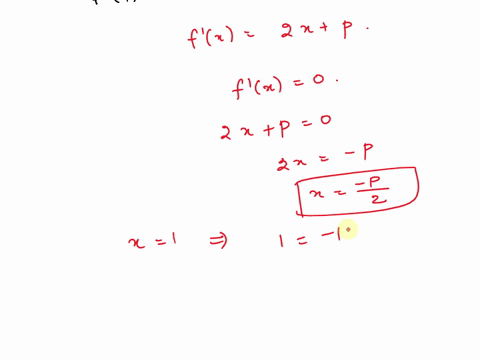 f'(x) = 2x + p .
f'(x) = 0 .
2x + p = 0
2x = -p
x = -p/2
x = 1 ⇒ 1 = -